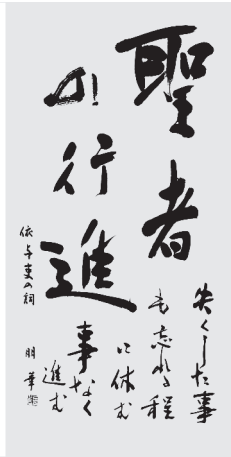 聖者
の行進
失くした事
も忘れる程
に休む
事なく
進む
依与吏の詞
朋華